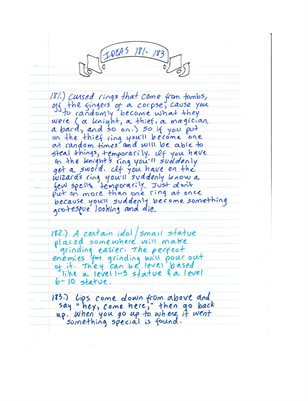 IDEAS 181-183
181.) Cursed rings that come from tombs,
off the fingers of a corpse, cause you
to randomly become what they
were (a knight, a thief, a magician,
a bard, and so on.) So if you put
on the thief ring you'll become one
at random times and will be able to
steal things, temporarily. If you have
on the knight's ring you'll suddenly
get a sword. If you have on the
wizards ring you'll suddenly know a
few spells temporarily. Just don't
put on more than one ring at once
because you'll suddenly become something
grotesque looking and die.
182.) A certain idol/small statue
placed somewhere will make
grinding easier. The perfect
enemies for grinding will pour out
of it. They can be level based
like a level 1-5 statue & a level
6-10 statue.
183.) Lips come down from above and
say "hey, come here," then go back
up. When you go up to where it went
something special is found.